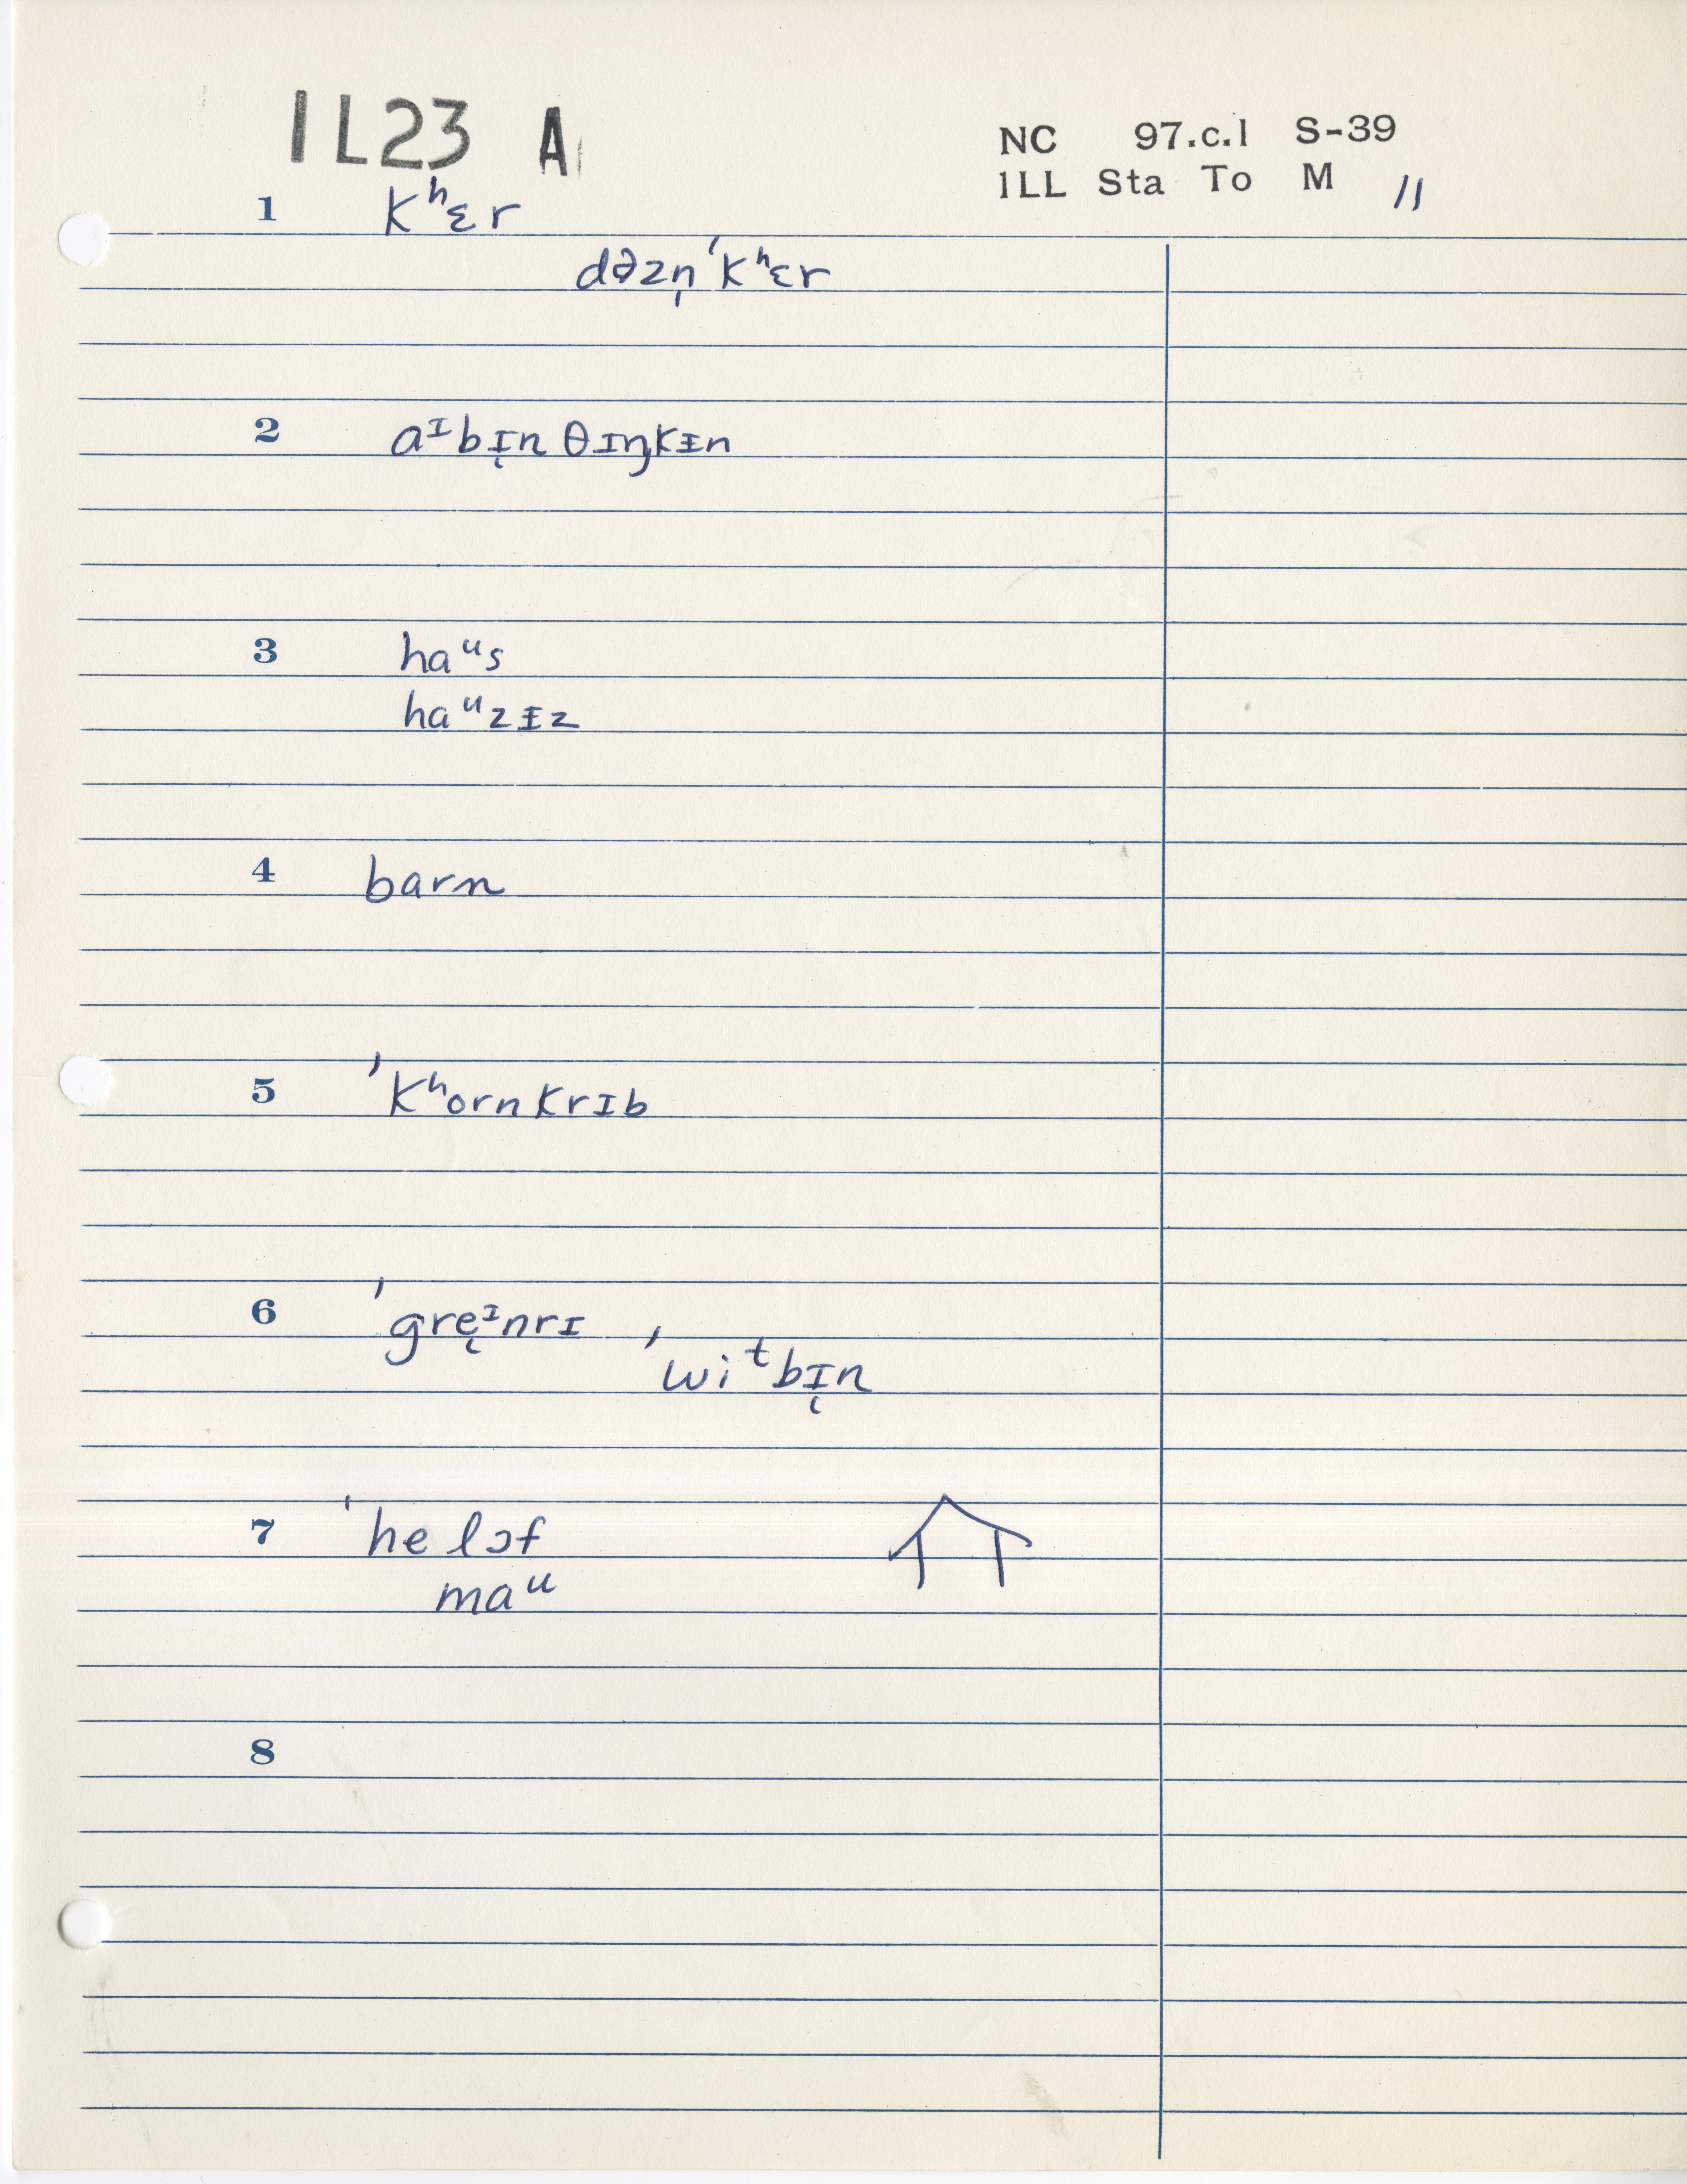 1L23 A
NC 97.c.1 S-39
1LL Sta To M 11
1 kʰɛr
dəzn̩ˈkʰɛr
2 aᶦbɪ̨n θɪŋkɪ̵n
3 haᵘs
haᵘzɪ̵z
4 barn
5 ˈkʰornkrɪb
6 ˈgrę̈ᶦnrɪ
ˈwiᵗbɪ̨n
7 ˈhelɔf
maᵘ
8